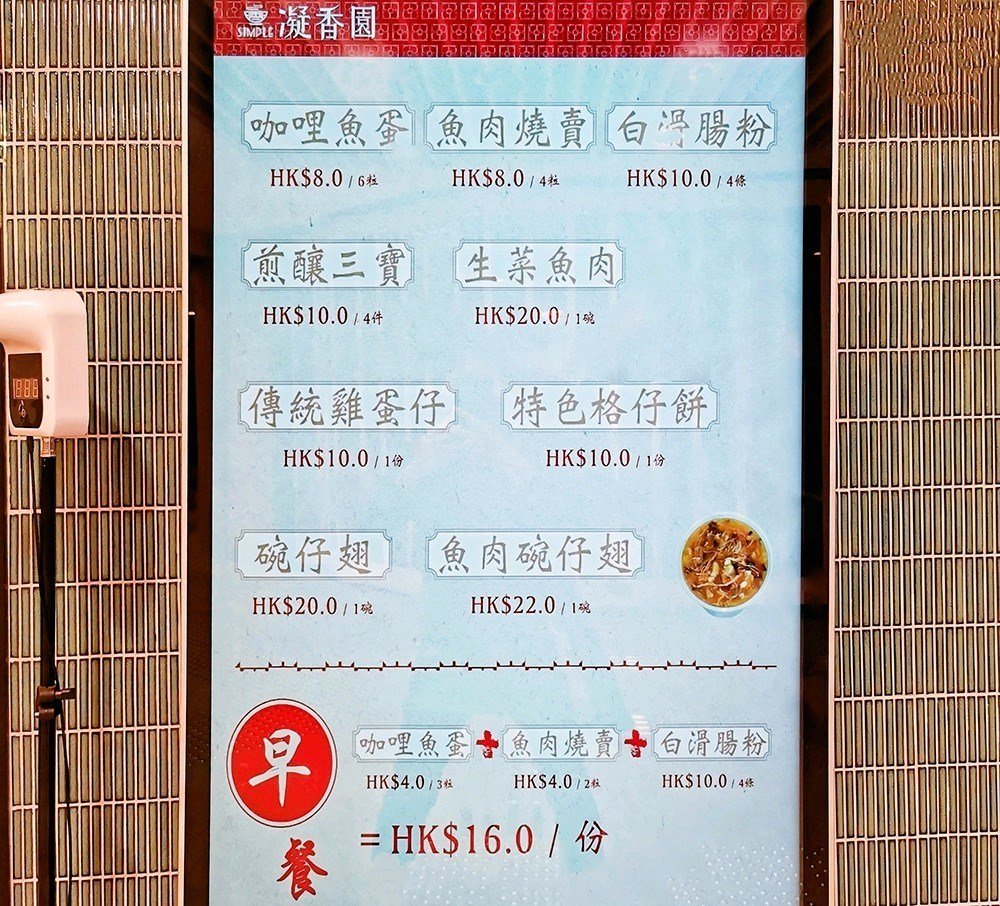 SIMPLE 凝香園
咖哩魚蛋 魚肉燒賣 白滑腸粉
HK$8.0 / 6粒 HK$8.0 / 4粒 HK$10.0 / 4條
煎釀三寶 生菜魚肉
HK$10.0 / 4件 HK$20.0 / 1碗
傳統雞蛋仔 特色格仔餅
HK$10.0 / 1份 HK$10.0 / 1份
碗仔翅 魚肉碗仔翅
HK$20.0 / 1碗 HK$22.0 / 1碗
早餐
咖哩魚蛋 + 魚肉燒賣 + 白滑腸粉
HK$4.0 / 3粒 HK$4.0 / 2粒 HK$10.0 / 4條
= HK$16.0 / 份